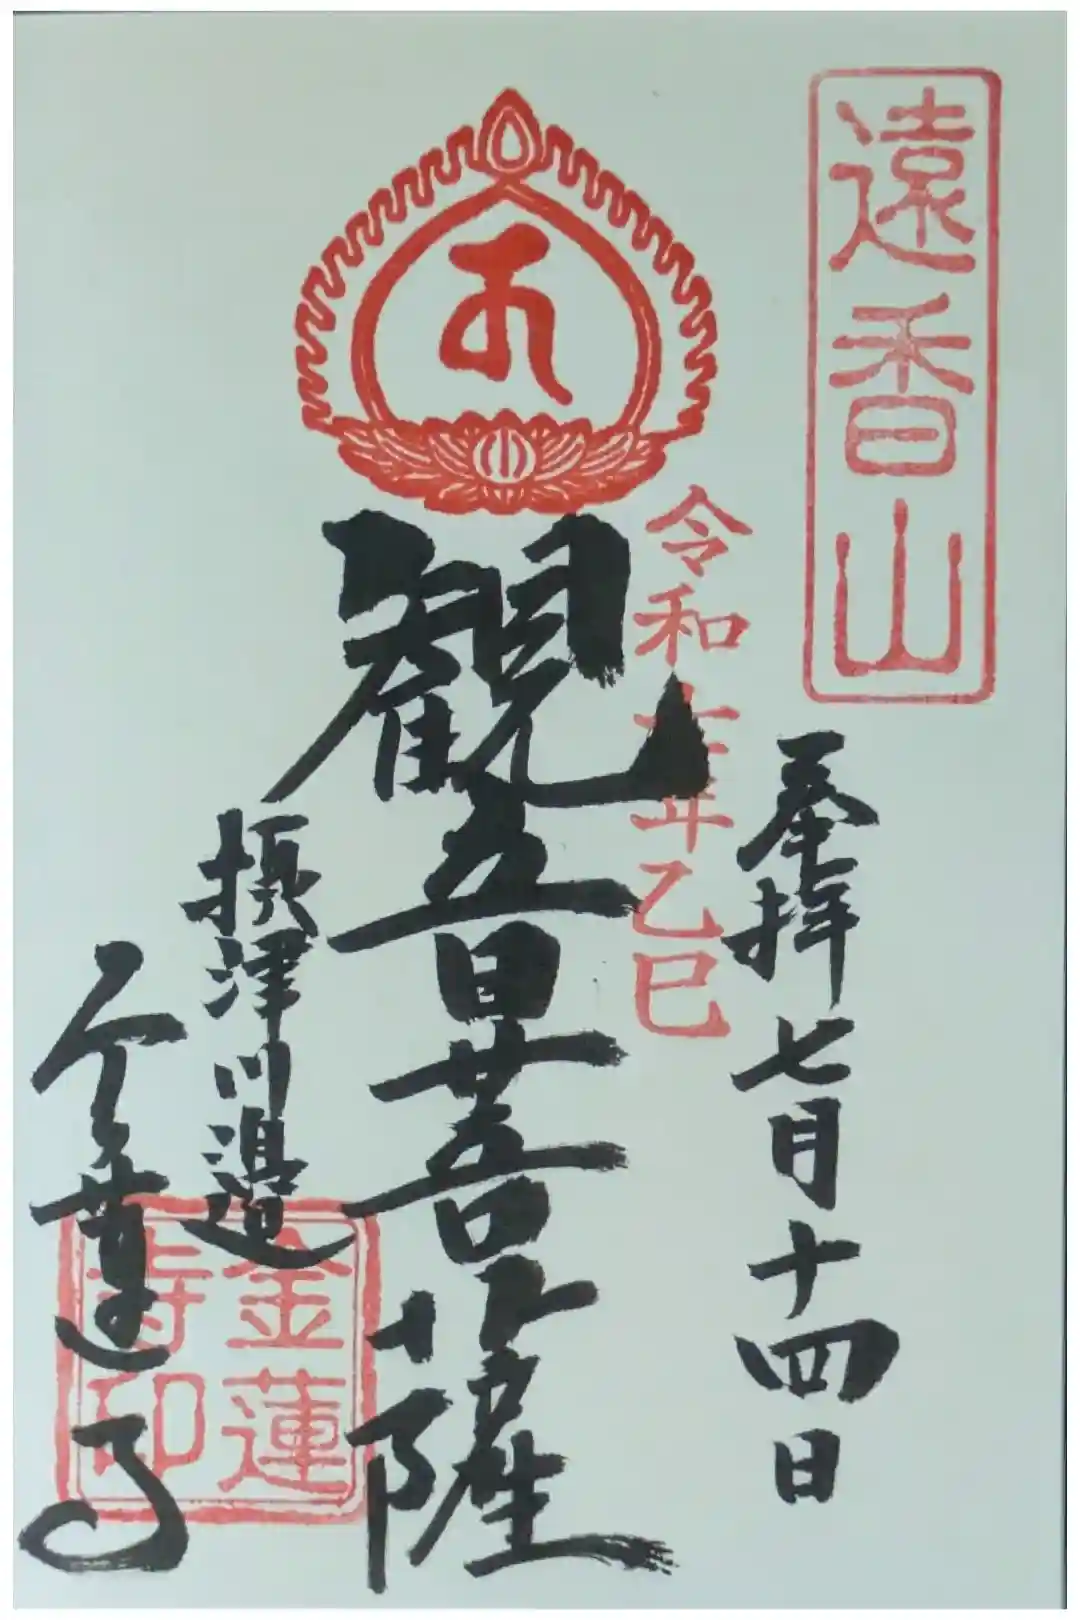 遠香山
奉拝 七月十四日
令和七年乙巳
観音菩薩
摂津川邉
金蓮寺
金蓮
寺印